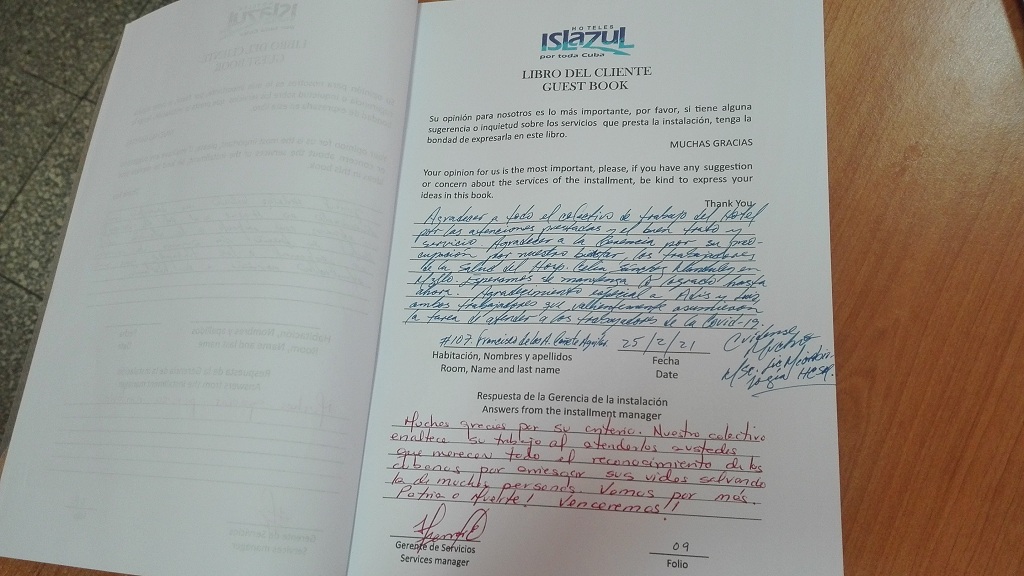 HOTELES
ISLAZUL
por toda Cuba
LIBRO DEL CLIENTE
GUEST BOOK
Su opinión para nosotros es lo más importante, por favor, si tiene alguna
sugerencia o inquietud sobre los servicios que presta la instalación, tenga la
bondad de expresarla en este libro.
MUCHAS GRACIAS
Your opinion for us is the most important, please, if you have any suggestion
or concern about the services of the installment, be kind to express your
ideas in this book.
Thank You
Agradecer a todo el colectivo de trabajo del Hotel
por las atenciones prestadas y el buen trato y
servicio Agradecer a la Gerencia por su preo-
cupación por nuestro bienestar, los trabajadores
de la salud del Hosp. Celia Sánchez Manduley en
Mzllo. Esperamos se mantenga lo logrado hasta
ahora. Agradecimiento especial a
ambos trabajadores que valientemente asumieron
la tarea de atender a los trabajadores de la Covid-19.
#107. Francisco de los A. Aguilar 25/2/21
Cuídense
Mucho
MSc. Lic. Microbio-
logía Hosp.
Habitación, Nombres y apellidos
Room, Name and last name
Fecha
Date
Respuesta de la Gerencia de la instalación
Answers from the installment manager
Muchas gracias por su criterio. Nuestro colectivo
enaltece su trabajo al atenderlos a ustedes
que merecen todo el reconocimiento de los
cubanos por arriesgar sus vidas salvando
la de muchas personas. Vamos por más.
Patria o Muerte! Venceremos!!
Gerente de Servicios
Services manager
09
Folio